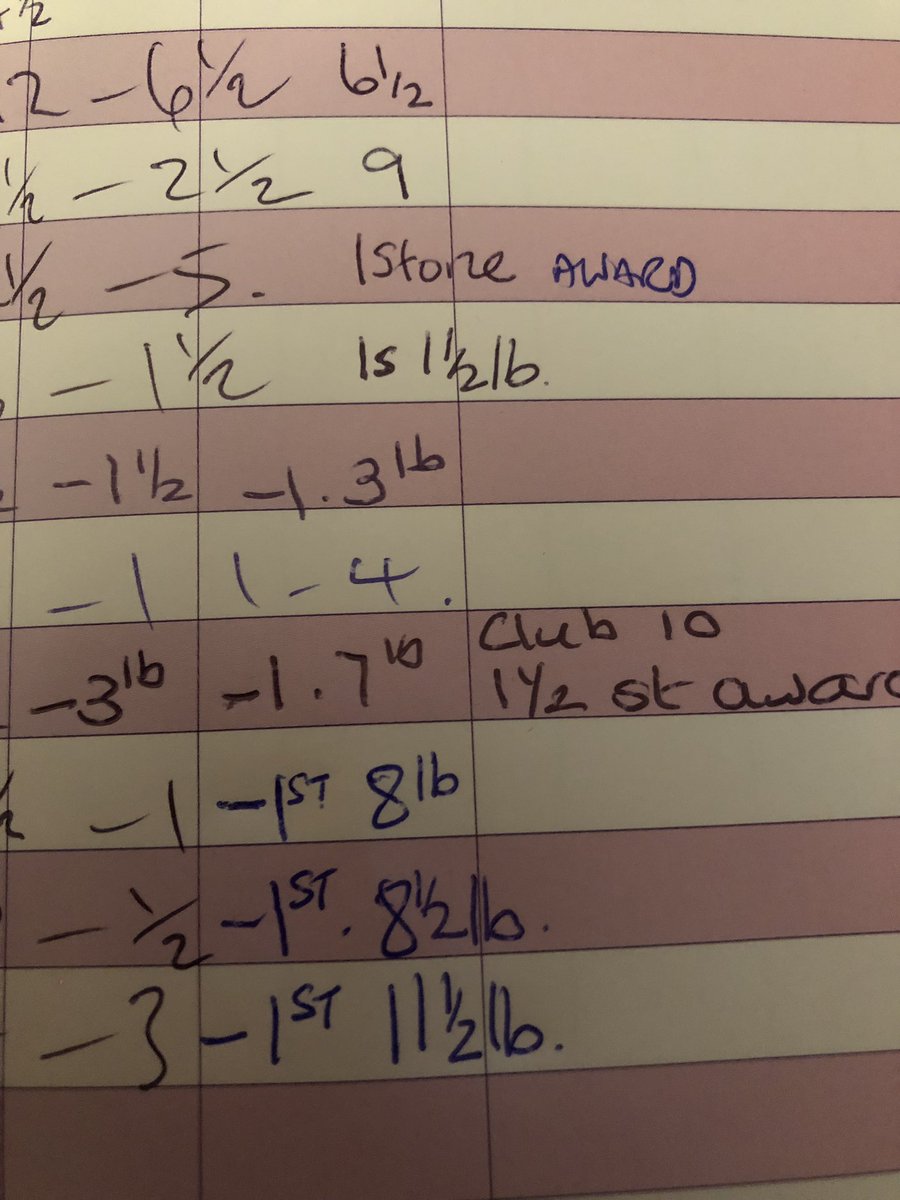 2 -6 1/2 6 1/2
1/2 - 2 1/2 9
1/2 -5. 1Stone AWARD
- 1 1/2 1s 1 1/2 lb.
-1 1/2 -1.3lb
-1 1-4.
-3lb -1.7lb Club 10
1 1/2 st award
1/2 -1 -1ST 8lb
- 1/2 -1ST. 8 1/2 lb.
-3 -1ST 11 1/2 lb.